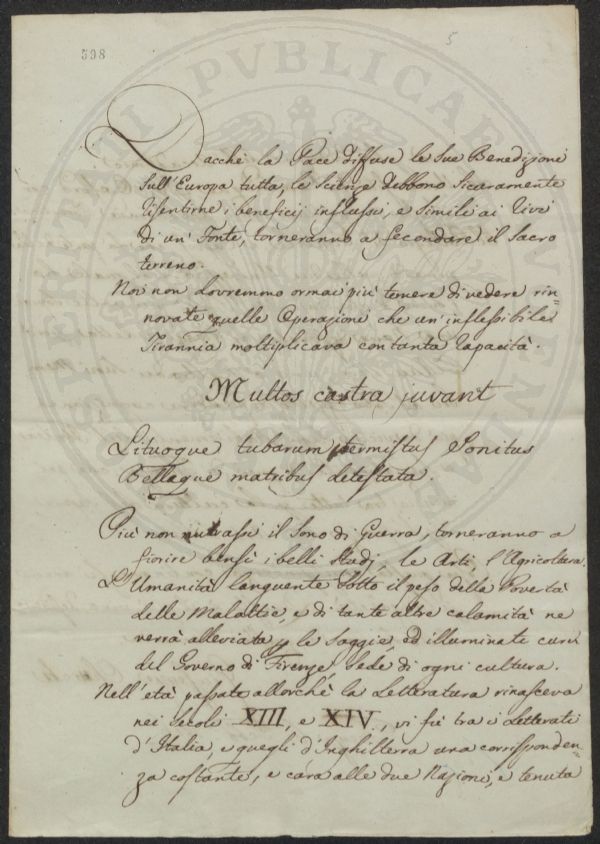 598
5
Dacchè la Pace diffuse le sue Benedizioni
sull'Europa tutta, le Scienze debbono sicuramente
risentirne i beneficj influssi, e simili ai rivi
di un' Fonte, torneranno a fecondare il sacro
terreno.
Noi non dovremmo ormai più temere di vedere rin=
novate quelle Operazioni che un' inflessibile
Tirannia moltiplicava con tanta Capacità.
Multos castra juvant
Lituoque tubarum permistus Sonitus
Bellaque matribus detestata.
Più non udrassi il sono di Guerra, torneranno a
fiorire bensì i belli studj, le Arti, l'Agricoltura.
L'Umanità languente sotto il peso della Povertà
delle Malattie, e di tante altre calamità ne
verrà alleviata, le saggie, ed illuminate cure
del Governo di Firenze sede di ogni cultura.
Nell'età passate allorchè la Letteratura rinasceva
nei secoli XIII, e XIV, vi fù tra i Letterati
d'Italia, e quegli d'Inghilterra una corrisponden=
za costante, e cara alle due Nazioni, e tenuta